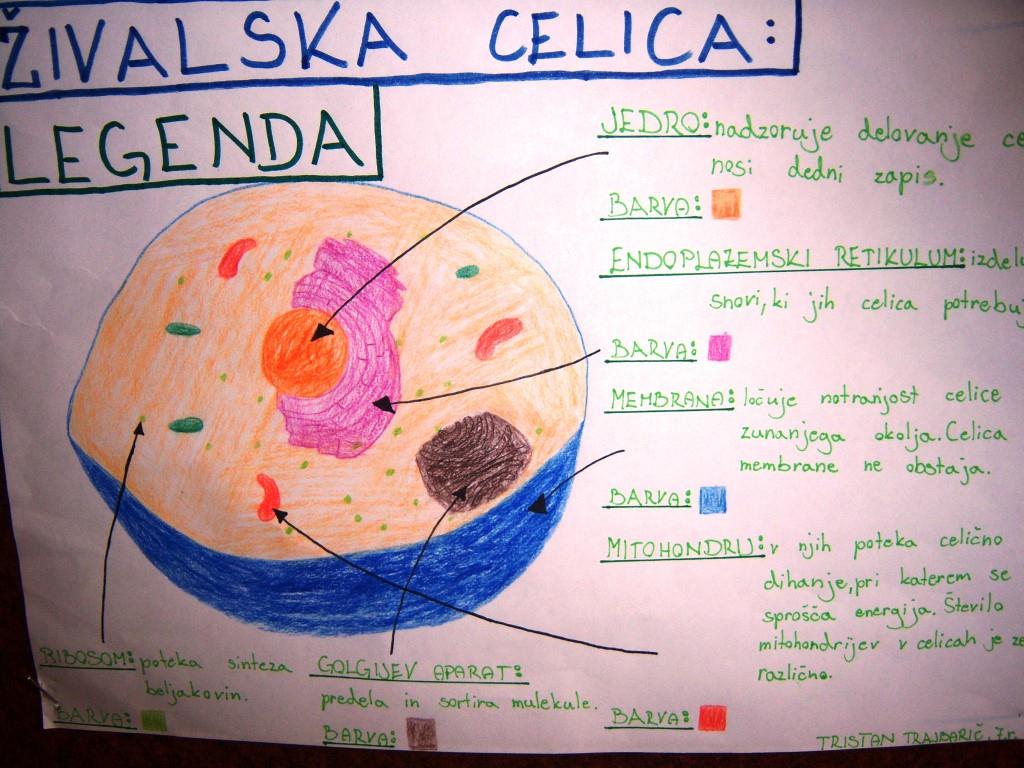 ŽIVALSKA CELICA:
LEGENDA
JEDRO: nadzoruje delovanje ce
nosi dedni zapis.
BARVA:
ENDOPLAZEMSKI RETIKULUM: izdelu
snovi, ki jih celica potrebuj
BARVA:
MEMBRANA: ločuje notranjost celice
zunanjega okolja. Celica
membrane ne obstaja.
BARVA:
MITOHONDRIJ: v njih poteka celično
dihanje, pri katerem se
sprošča energija. Število
mitohondrijev v celicah je ze
različno.
BARVA:
RIBOSOM: poteka sinteza
beljakovin.
BARVA:
GOLGIJEV APARAT:
predela in sortira mulekule.
BARVA:
TRISTAN TRAJBARIČ, 7.r